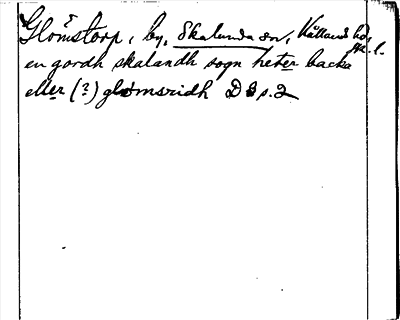 Glömstorp, by, Skalunda sn, Kållands hd,
en gordh skalandh sogn heter backa
eller (?) glömsridh D 3 s. 2